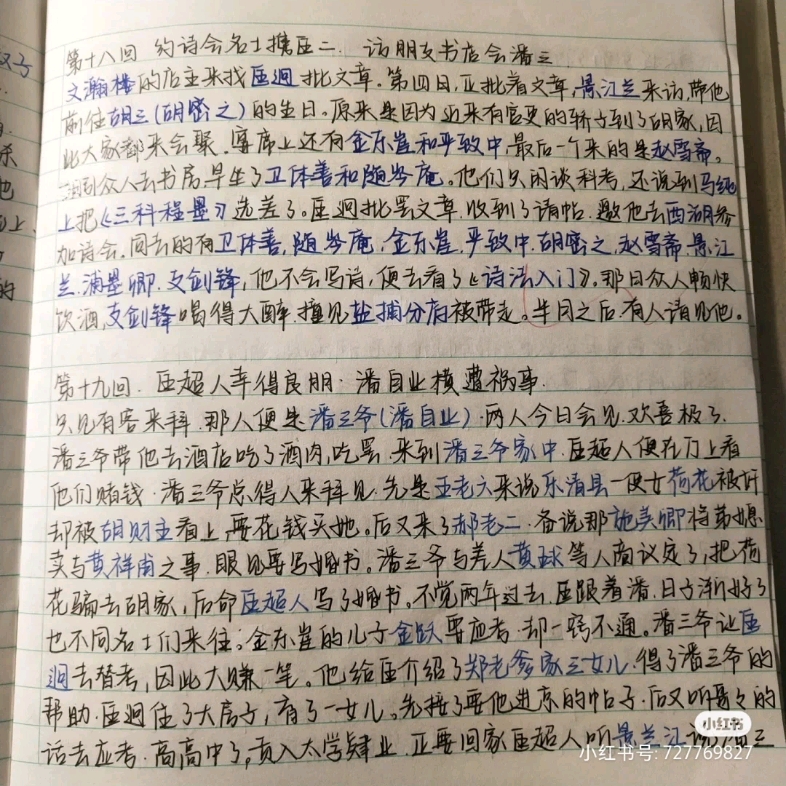 第十八回 约诗会名士携匡二. 访朋友书店会潘三
文瀚楼的店主来找匡迥批文章。第四日,正批着文章,景江兰来访,带他
前往胡三(胡密之)的生日。原来是因为近来有官吏的轿子到了胡家,因
此大家都来会聚。宴席上还有金东崖和严致中,最后一个来的是赵雪斋。
众人去书房,早坐了卫体善和随岑庵。他们久闲谈科考,还说到马纯
上把《三科程墨》选差了。匡迥批罢文章,收到了请帖,邀他去西湖参
加诗会。同去的有卫体善,随岑庵,金东崖,严致中,胡密之,赵雪斋,景江
兰,浦墨卿,支剑锋,他不会写诗,便去看了《诗法入门》。那日众人畅快
饮酒,支剑锋喝得大醉,撞见盐捕分府被带走。半月之后,有人请见他。
第十九回. 匡超人幸得良朋·潘自业横遭祸事.
只见有客来拜,那人便是潘三爷(潘自业)·两人今日会见,欢喜极了.
潘三爷带他去酒店吃了酒肉,吃罢,来到潘三爷家中,匡超人便在门上看
他们赌钱·潘三爷总得人来拜见,先是王老六来说乐清县一使女荷花被奸
却被胡财主看上,要花钱买她。后又来了郝老二,备说那施美卿将弟媳
卖与黄祥甫之事,眼见要写婚书。潘三爷与差人黄球等人商议定了,把荷
花骗去胡家,后命匡超人写了婚书。不觉两年过去,匡跟着潘,日子渐好了
也不同名士们来往。金东崖的儿子金跃要应考,却一窍不通。潘三爷让匡
迥去替考,因此大赚一笔。他给匡介绍了郑老爹家三女儿,得了潘三爷的
帮助,匡迥住了大房子,有了一女儿。先接了要他进京的帖子,后又听哥哥的
话去应考,高高中了,贡入太学肄业,正要回家匡超人听景兰江说了潘三
小红书
小红书号: 727769827